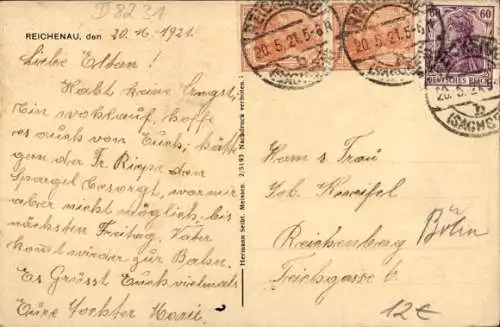 D8231
REICHENAU, den 20./6. 1921.
Liebe Eltern!
Habt keine Angst,
Bin wohlauf, hoffe
es auch von Euch; hätt
gern der Fr. Riepe den
Spargel besorgt, war mir
aber nicht möglich, bis
nächsten Freitag. Vater
komt wieder zur Bahn.
Es Grüsst Euch vielmals
Eure Tochter
Hermann Seibt, Meissen. 2/5193 Nachdruck verboten.
20.5.21.5-6N
b
(SACHSEN)
20.5.21.5-6N
b
(SACHSEN)
60
DEUTSCHES REICH
20.5.21
b
(SACHSEN)
Herrn u Frau
Joh.
Reichenberg i/
Böhm
Teichgasse 6.
12€